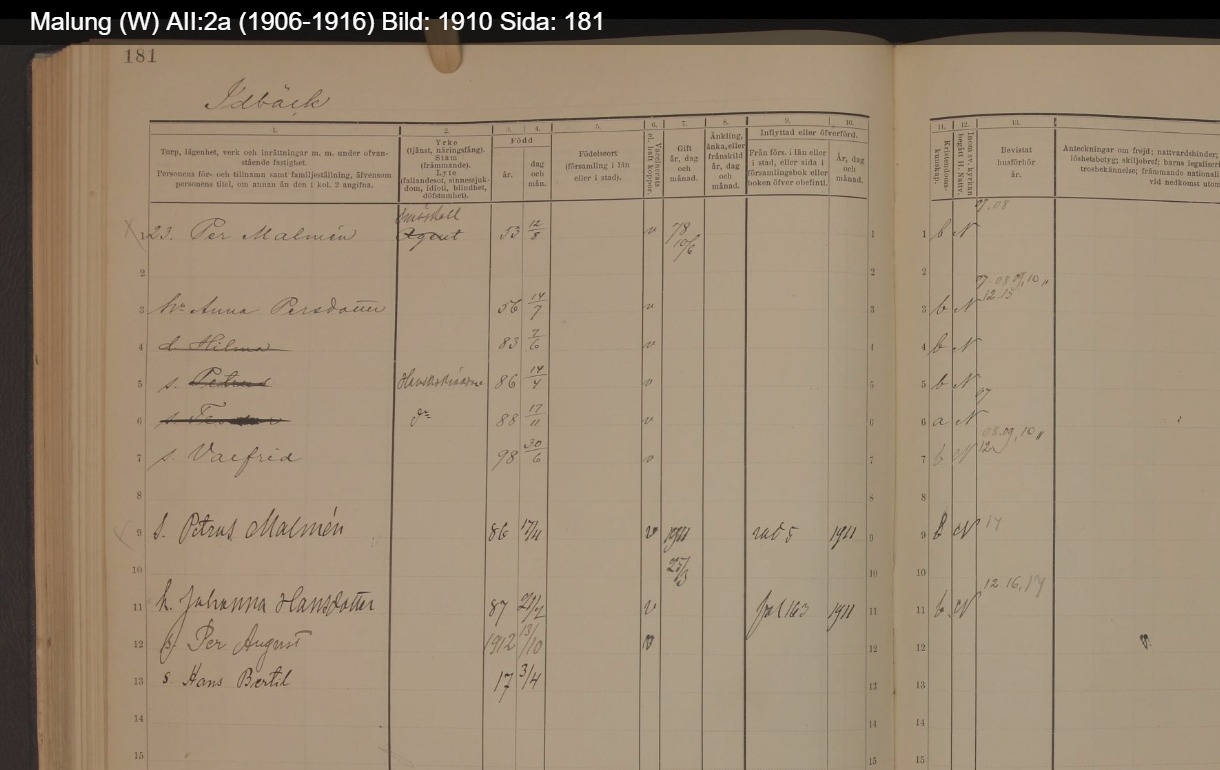 Malung (W) AII:2a (1906-1916) Bild: 1910 Sida: 181
181
Idbäck
1. 2. 3. 4. 5. 6. 7. 8. 9. 10. 11. 12. 13.
Torp, lägenhet, verk och inrättningar m. m. under ofvan-
stående fastighet.
Personens för- och tillnamn samt familjeställning, äfvensom
personens titel, om annan än den i kol. 2 angifna.
Yrke
(tjänst, näringsfång).
Stam
(främmande).
Lyte
(fallandesot, sinnessjuk-
dom, idioti, blindhet,
döfstumhet).
Född
år.
dag
och
mån.
Födelseort
(församling i län
eller i stad).
Vaccinerats
el. haft koppor.
Gift
år, dag
och
månad.
Änkling,
änka, eller
frånskild
år, dag
och
månad.
Inflyttad eller öfverförd.
Från förs. i län eller
i stad, eller sida i
församlingsbok eller
boken öfver obefintl.
År, dag
och
månad.
Kristendoms-
kunskap.
Inom sv. kyrkan
begått H. Nattv.
Bevistat
husförhör
år.
Anteckningar om frejd; nattvardshinder;
löshetsbetyg; skiljobref; barns legaliser
trosbekännelse; främmande nationali
vid nedkomst utom
07.08
1 23. Per Malmén Agent 53 12/8 v 78 10/6 1 1 b N
2 2 2
07.08.09,10 „
12.15
3 hu Anna Persdotter 56 14/7 v 3 3 b N
4 d. Hilma 83 7/6 v 4 4 b N
5 s. Petrus 86 14/4 v 5 5 b N
07
6 s. dr 88 17/11 v 6 6 a N
08.09,10 „
7 s. Valfrid 98 30/6 v 7 7 b N 12
8 8 8
9 s. Petrus Malmén 86 v 1911 rad 5 1911 9 9 N 14
10 25/3 10 10
12.16,19
11 h. Johanna Hansdotter 87 v 163 1911 11 11 b N
12 s. Per August 1912 13/10 v 12 12
13 s. Hans Bertil 17 3/4 13 13
14 14 14
15 15 15